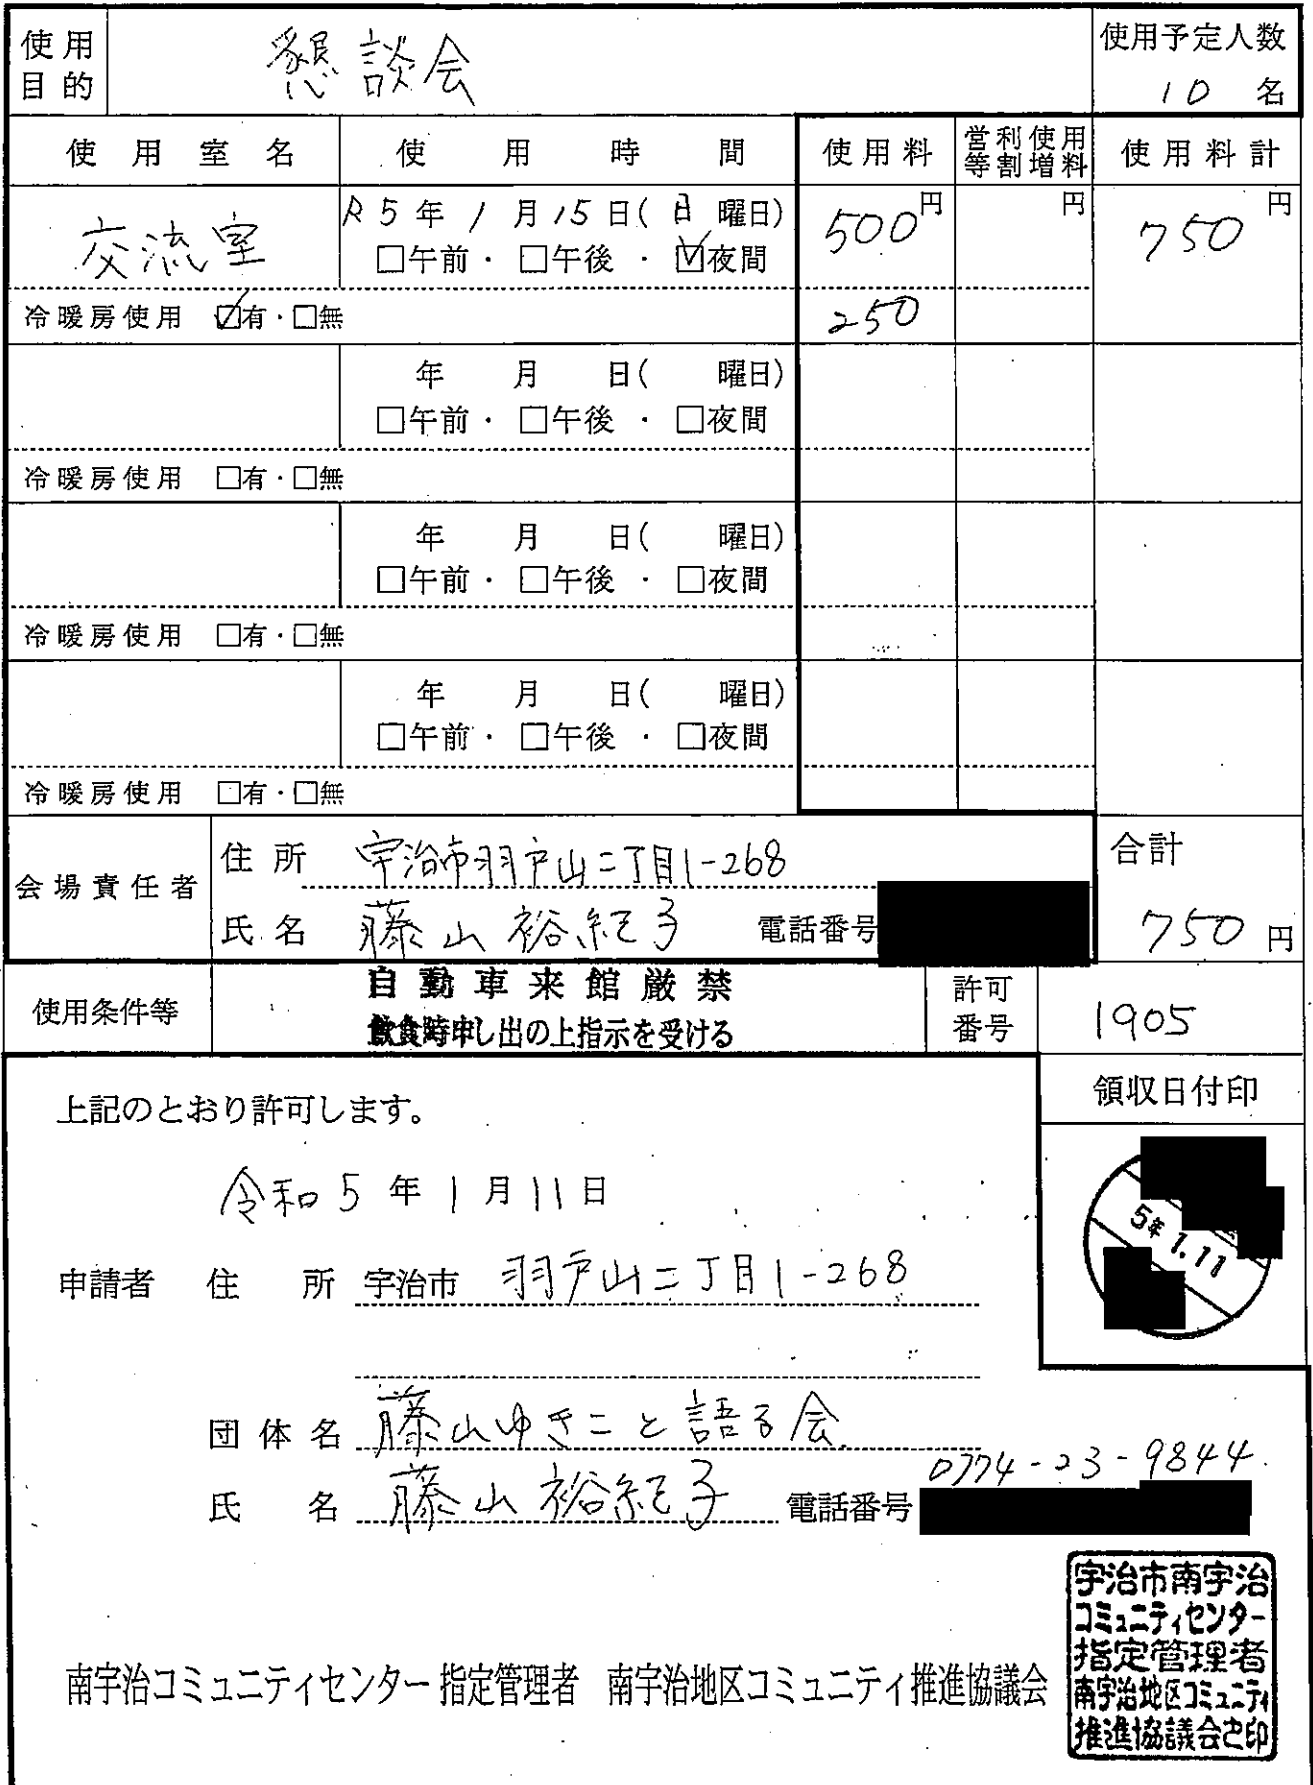 使用目的 懇談会 使用予定人数 10 名
使用室名 使用時間 使用料 営利使用等割増料 使用料計
交流室 R5年1月15日(日曜日) 500円 円 750円
□午前・□午後・☑夜間
冷暖房使用 ☑有・□無 250
年 月 日( 曜日)
□午前・□午後・□夜間
冷暖房使用 □有・□無
年 月 日( 曜日)
□午前・□午後・□夜間
冷暖房使用 □有・□無
年 月 日( 曜日)
□午前・□午後・□夜間
冷暖房使用 □有・□無
会場責任者 住所 宇治市羽戸山二丁目1-268 合計
氏名 藤山裕紀子 電話番号 750円
使用条件等 自動車来館厳禁 許可番号 1905
飲食時申し出の上指示を受ける
領収日付印
上記のとおり許可します。
令和5年1月11日
5年 1.11
申請者 住所 宇治市 羽戸山二丁目1-268
団体名 藤山ゆきこと語る会
0774-23-9844
氏名 藤山裕紀子 電話番号
南宇治コミュニティセンター 指定管理者 南宇治地区コミュニティ推進協議会
宇治市南宇治
コミュニティセンター
指定管理者
南宇治地区コミュニティ
推進協議会之印